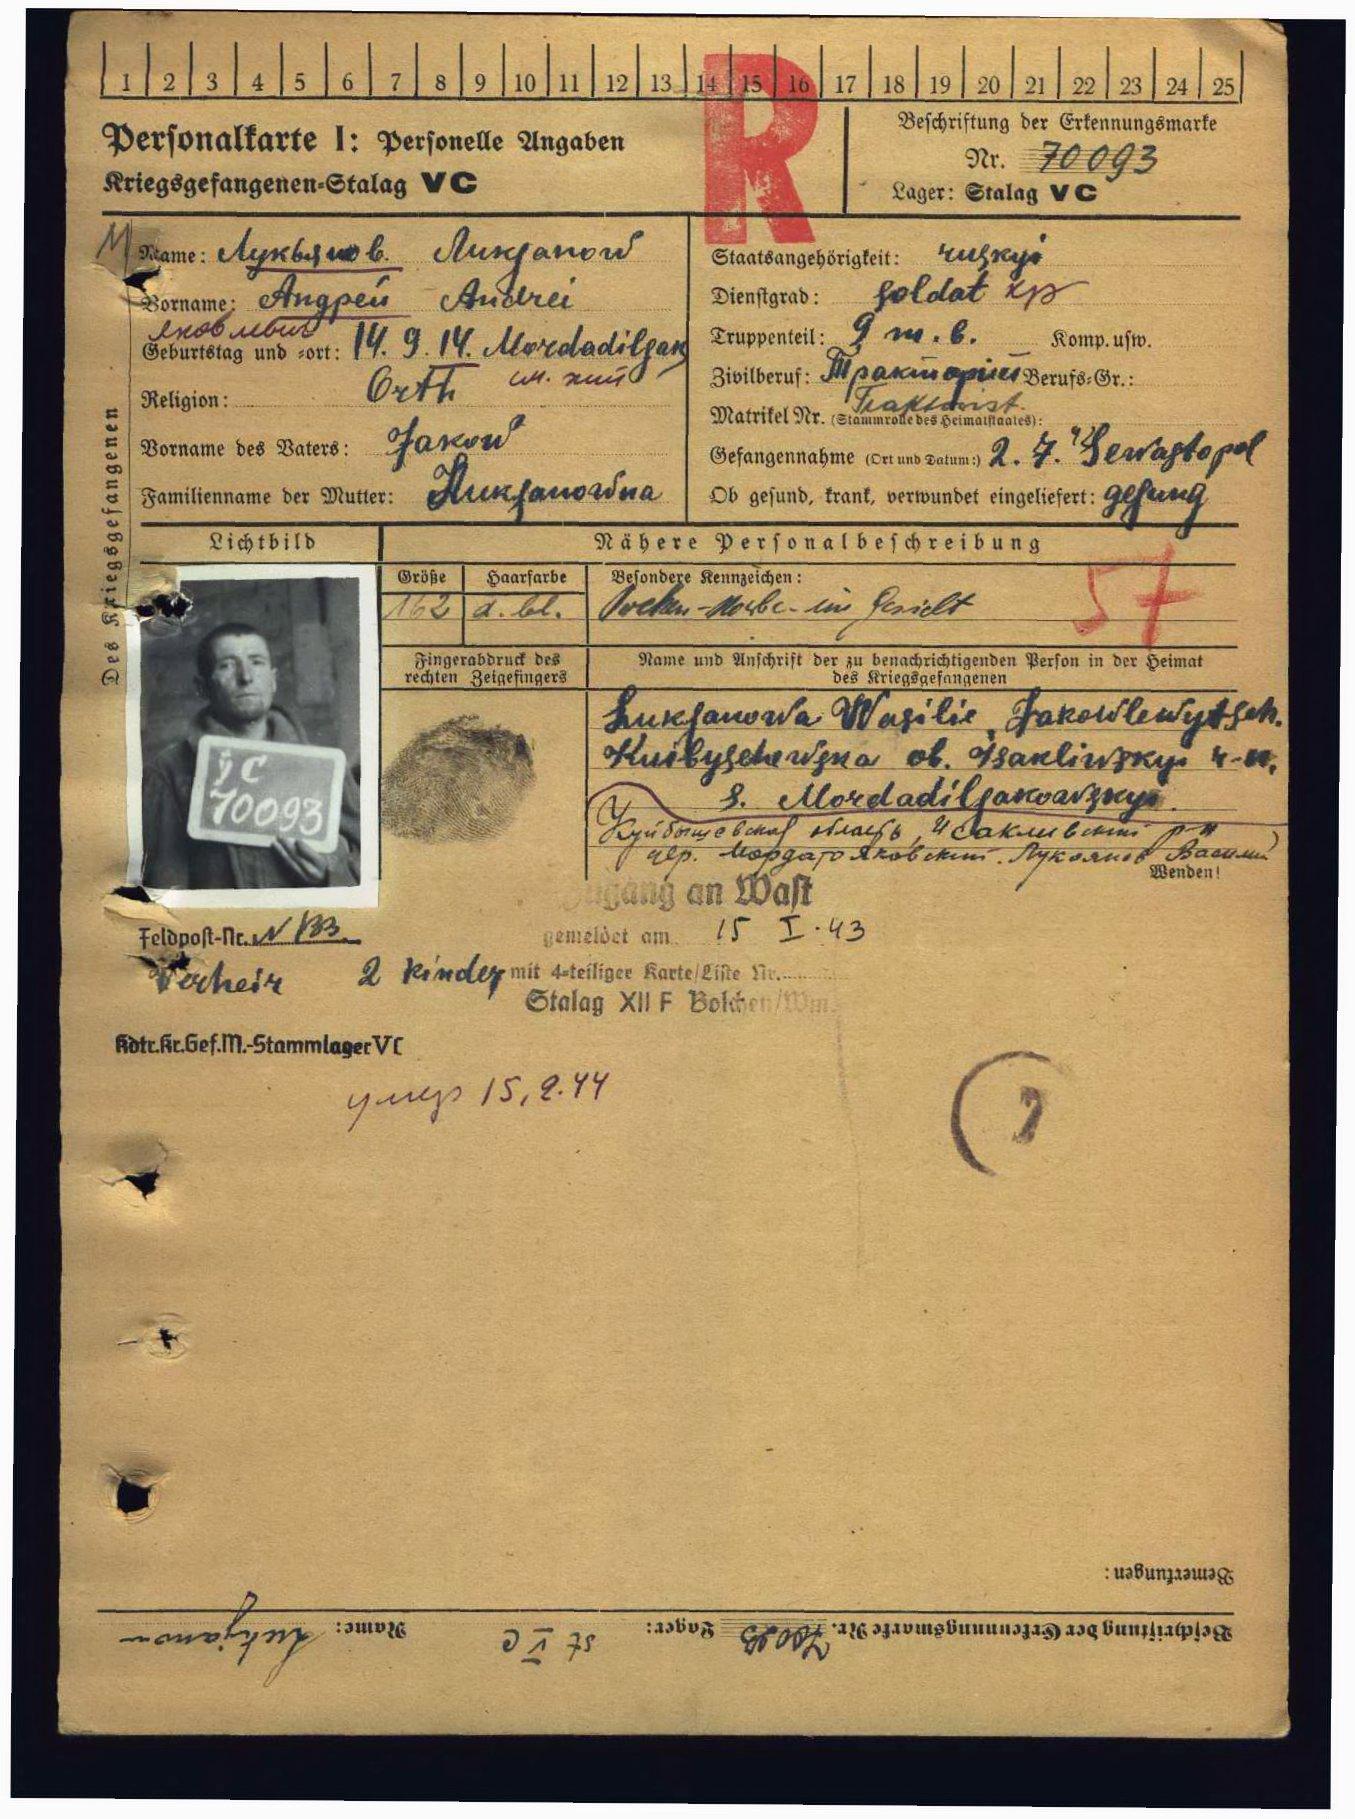 1 2 3 4 5 6 7 8 9 10 11 12 13 14 15 16 17 18 19 20 21 22 23 24 25
R
Personalkarte I: Personelle Angaben
Kriegsgefangenen-Stalag VC
Beschriftung der Erkennungsmarke
Nr. 70093
Lager: Stalag VC
Des Kriegsgefangenen
Name: Лукьянов. Lukjanow
Vorname: Андрей Andrei
Яковлевич
Geburtstag und -ort: 14. 9. 14. Mordadiljak
Religion: Orth
Vorname des Vaters: Jakow
Familienname der Mutter: Lukjanowna
Staatsangehörigkeit: ruskyi
Dienstgrad: Soldat кр
Truppenteil: 9 m. b. Komp. usw.
Zivilberuf: Тракторист Berufs-Gr.:
Traktorist.
Matrikel Nr. (Stammrolle des Heimatstaates):
Gefangennahme (Ort und Datum:) 2. 7. Sewastopol
Ob gesund, krank, verwundet eingeliefert: gesund
Lichtbild
Nähere Personalbeschreibung
Größe Haarfarbe Besondere Kennzeichen:
162 d. bl. Pocken-Narbe im Gesicht
57
Fingerabdruck des
rechten Zeigefingers
Name und Anschrift der zu benachrichtigenden Person in der Heimat
des Kriegsgefangenen
VC
70093
Lukjanowa Wasilie, Jakowlewytsch.
Kuibyschewska ob. Isakliwskyi r-n,
s. Mordadiljakowskyi.
Куйбышевская область, Исаклинский р-н
дер. Мордато Яковский. Лукоянов Василий
Wenden!
Zugang an Wast
gemeldet am 15 I. 43
mit 4-teiliger Karte/Liste Nr.
Stalag XII F Bolchen/Wm.
Feldpost-Nr. N 133.
Verheir 2 kinder
Kdtr.Kr.Gef.M.-Stammlager VC
умер 15, 2. 44
2
Bemerkungen:
Beschriftung der Erkennungsmarke Nr. 70093 Lager: St V C Name: Lukjanow